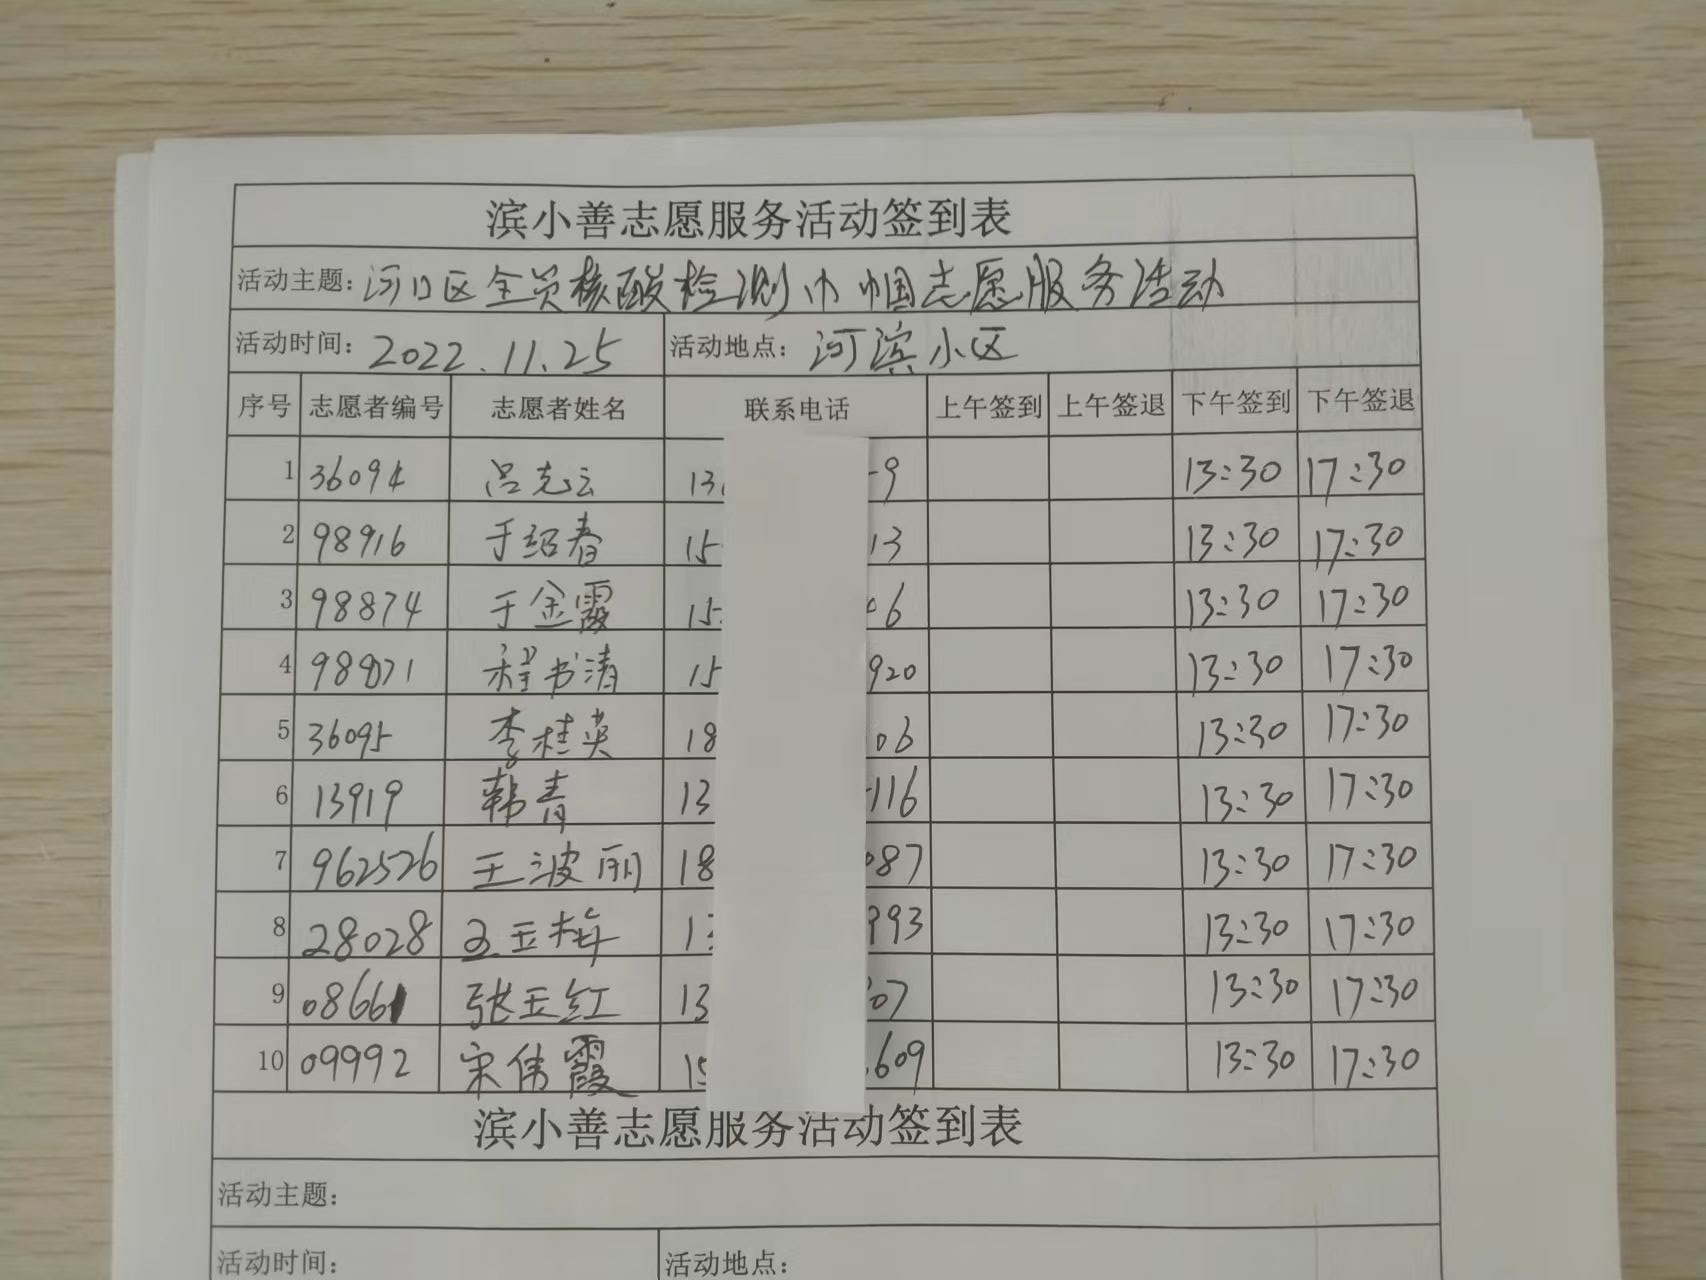 滨小善志愿服务活动签到表
活动主题：河口区全员核酸检测巾帼志愿服务活动
活动时间：2022.11.25 活动地点：河滨小区
序号 志愿者编号 志愿者姓名 联系电话 上午签到 上午签退 下午签到 下午签退
1 36094 吕克云 13 9 13:30 17:30
2 98916 于绍春 15 13 13:30 17:30
3 98874 于金霞 15 6 13:30 17:30
4 程书清 15 920 13:30 17:30
5 36095 李桂英 18 06 13:30 17:30
6 13919 韩青 13 116 13:30 17:30
7 962526 王波丽 18 087 13:30 17:30
8 28028 王玉梅 13 993 13:30 17:30
9 08661 张玉红 13 07 13:30 17:30
10 09992 宋伟霞 15 609 13:30 17:30
滨小善志愿服务活动签到表
活动主题：
活动时间： 活动地点：